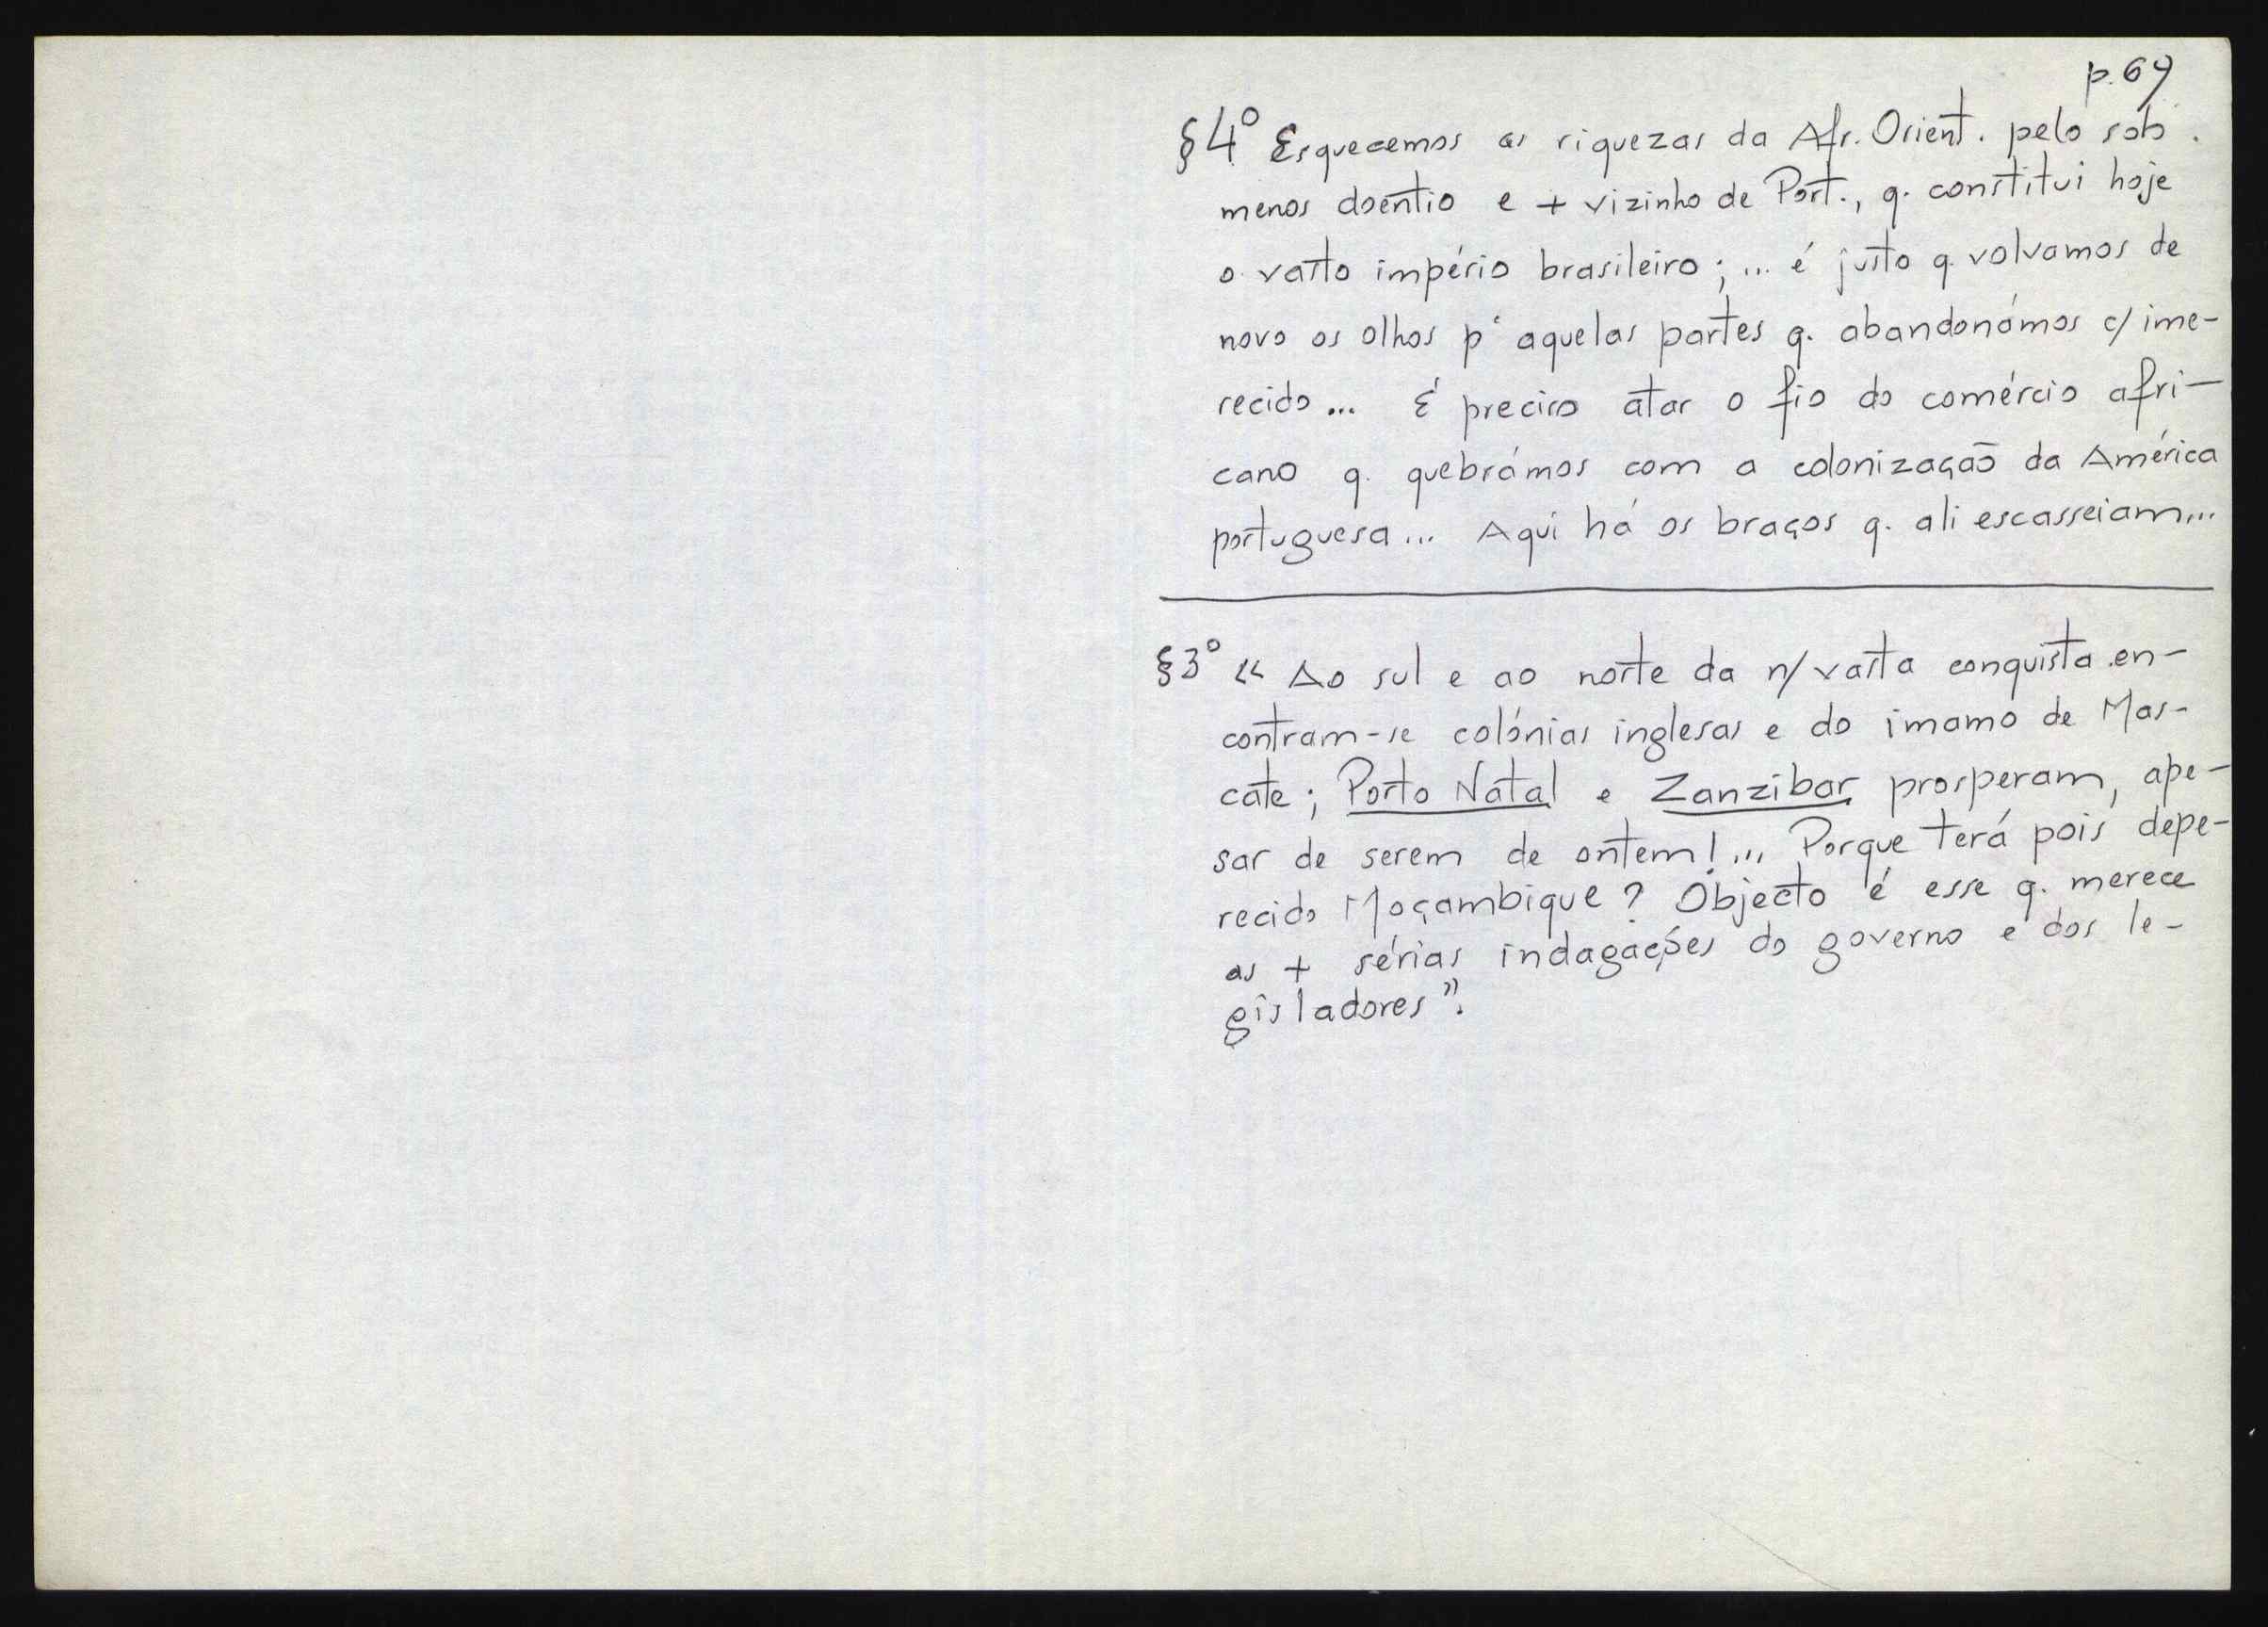 p. 69
§4º Esquecemos as riquezas da Afr. Orient. pelo
menos doentio e + vizinho de Port., q. constitui hoje
o vasto império brasileiro; ... é justo q. volvamos de
novo os olhos pª aquelas partes q. abandonámos c/ ime-
recido... É preciso atar o fio do comércio afri-
cano q. quebrámos com a colonização da América
portuguesa... Aqui há os braços q. ali escasseiam...
§3º « Ao sul e ao norte da n/ vasta conquista en-
contram-se colónias inglesas e do imamo de Mas-
cate; Porto Natal e Zanzibar prosperam, ape-
sar de serem de ontem!... Porque terá pois depe-
recido Moçambique? Objecto é esse q. merece
as + sérias indagações do governo e dos le-
gisladores".